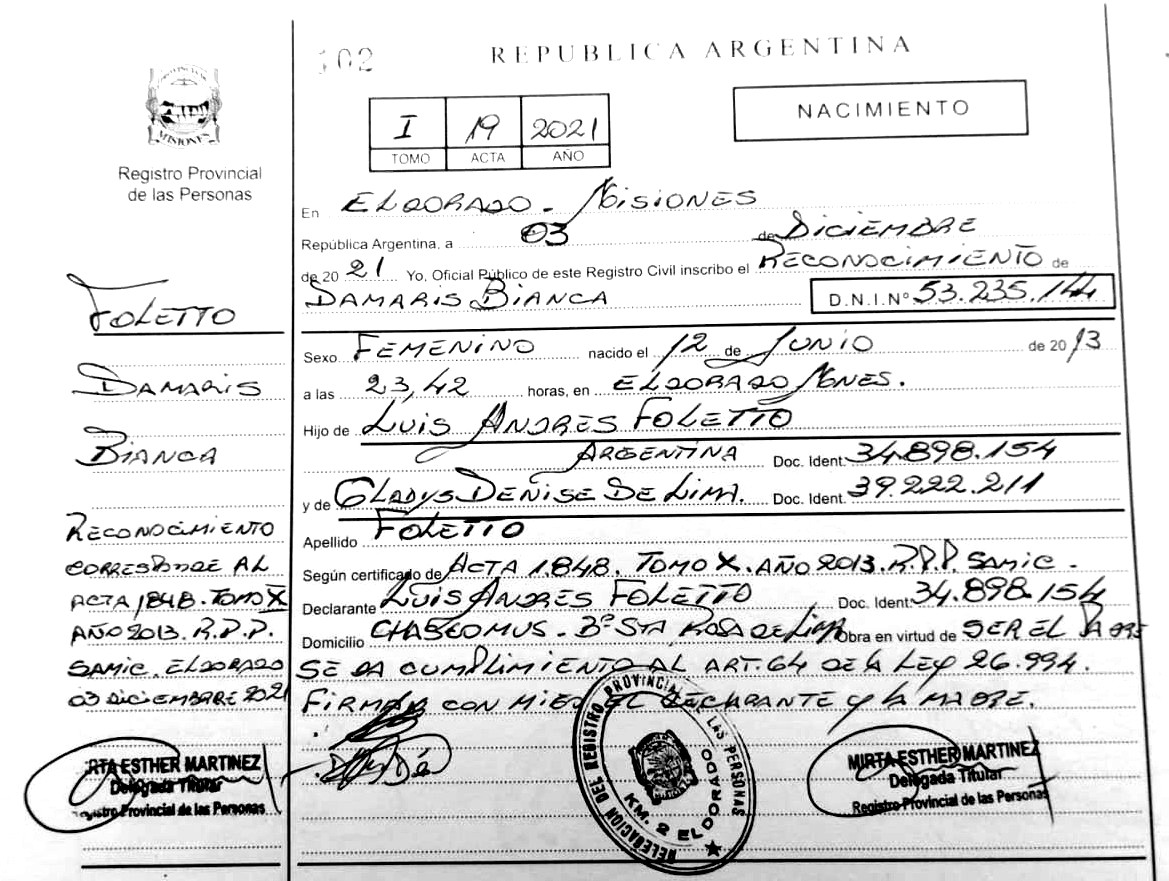 102
REPUBLICA ARGENTINA
PROVINCIA DE
MISIONES
Registro Provincial
de las Personas
I 19 2021
TOMO ACTA AÑO
NACIMIENTO
En ELDORADO - MISIONES
República Argentina, a 03 de DICIEMBRE
de 20 21 Yo, Oficial Público de este Registro Civil inscribo el RECONOCIMIENTO de
DAMARIS BIANCA D.N.I.Nº 53.235.144
Sexo FEMENINO nacido el 12 de JUNIO de 20 13
a las 23,42 horas, en ELDORADO MNES.
Hijo de LUIS ANDRES FOLETTO
ARGENTINA Doc. Ident. 34.898.154
y de GLADYS DENISE DE LIMA. Doc. Ident. 39.222.211
Apellido FOLETTO
Según certificado de ACTA 1.848. TOMO X. AÑO 2013. R.P.P. SAMIC.
Declarante LUIS ANDRES FOLETTO Doc. Ident. 34.898.154
Domicilio CHASCOMUS - Bº STA ROSA DE LIMA Obra en virtud de SER EL PADRE
SE DA CUMPLIMIENTO AL ART. 64 DE LA LEY 26.994.
FIRMAN CON MIGO EL DECLARANTE Y LA MADRE.
FOLETTO
DAMARIS
BIANCA
RECONOCIMIENTO
CORRESPONDE AL
ACTA 1848. TOMO X
AÑO 2013. R.P.P.
SAMIC. ELDORADO
03 DICIEMBRE 2021
RTA ESTHER MARTINEZ
Delegada Titular
Registro Provincial de las Personas
DELEGACION DEL REGISTRO PROVINCIAL DE LAS PERSONAS
KM. 2 ELDORADO
MIRTA ESTHER MARTINEZ
Delegada Titular
Registro Provincial de las Personas